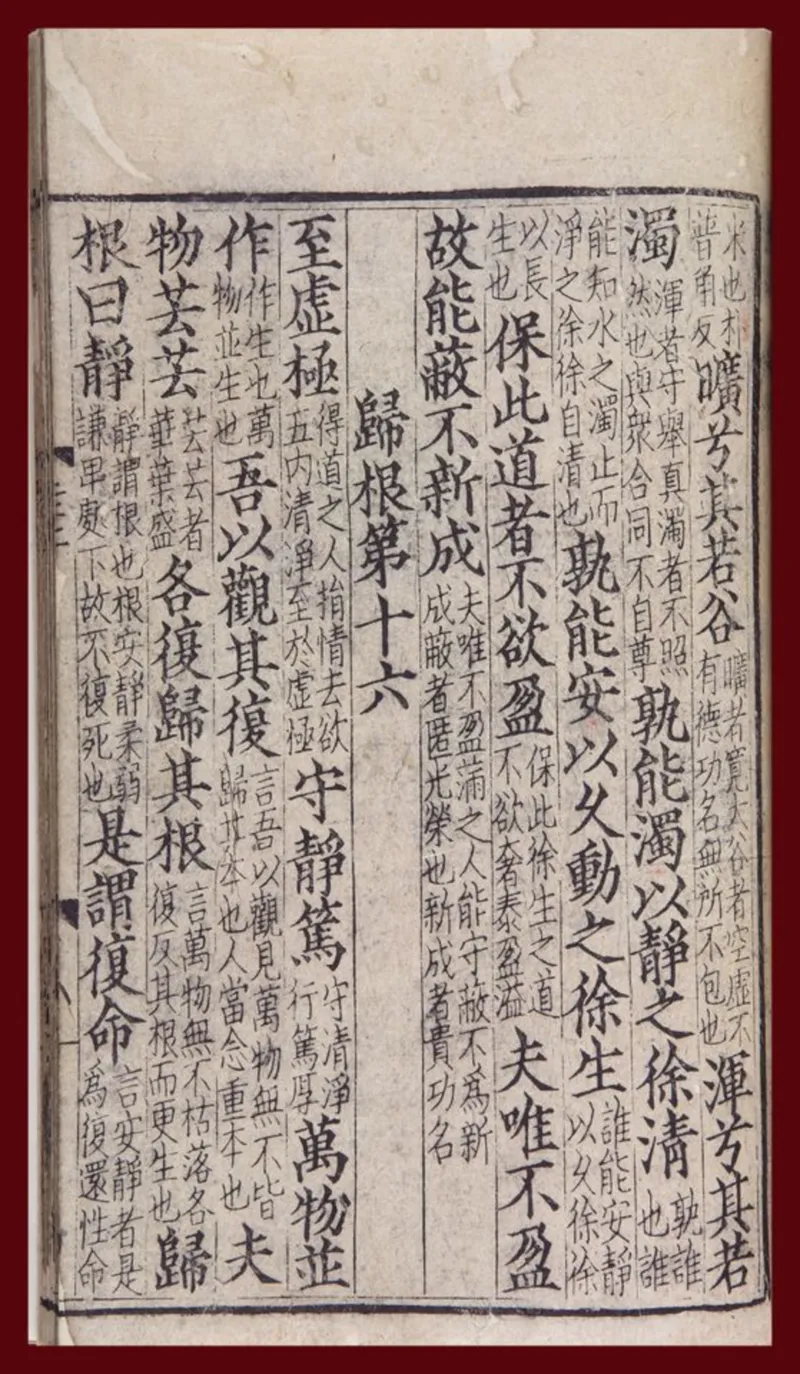 木也朴普角反曠兮其若谷曠者寬大谷者空虛不有德功名無所不包也渾兮其若
濁渾者守舉真濁者不照然也與衆合同不自尊孰能濁以靜之徐清孰誰也誰
能知水之濁止而淨之徐徐自清也孰能安以久動之徐生誰能安靜以久徐徐
以長生也保此道者不欲盈保此徐生之道不欲奢泰盈溢夫唯不盈
故能蔽不新成夫唯不盈滿之人能守蔽不為新成蔽者匿光榮也新成者貴功名
歸根第十六
至虛極得道之人捐情去欲五内清淨至於虛極守靜篤守清淨行篤厚萬物並
作作生也萬物並生也吾以觀其復言吾以觀見萬物無不皆歸其本也人當念重本也夫
物芸芸芸芸者華葉盛各復歸其根言萬物無不枯落各復反其根而更生也歸
根曰靜靜謂根也根安靜柔弱謙卑處下故不復死也是謂復命言安靜者是爲復還性命